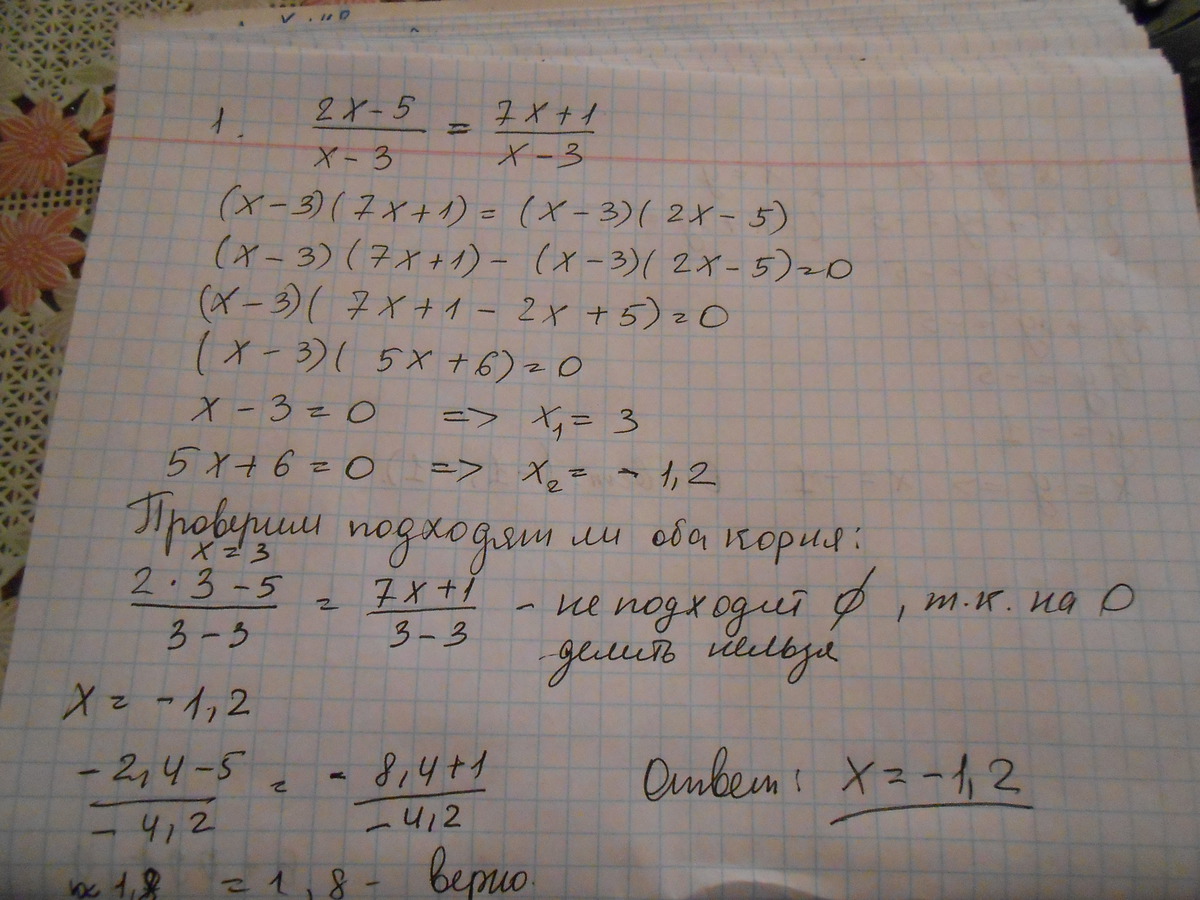 1. (2x-5)/(x-3) = (7x+1)/(x-3)
(x-3)(7x+1) = (x-3)(2x-5)
(x-3)(7x+1) - (x-3)(2x-5) = 0
(x-3)(7x+1-2x+5) = 0
(x-3)(5x+6) = 0
x-3 = 0 => x₁ = 3
5x+6 = 0 => x₂ = -1,2
Проверим подходят ли оба корня:
x = 3
(2·3-5)/(3-3) = (7x+1)/(3-3) - не подходит ∅, т.к. на 0
делить нельзя
x = -1,2
(-2,4-5)/(-4,2) = (-8,4+1)/(-4,2)
Ответ: x = -1,2
1,8 = 1,8 - верно.